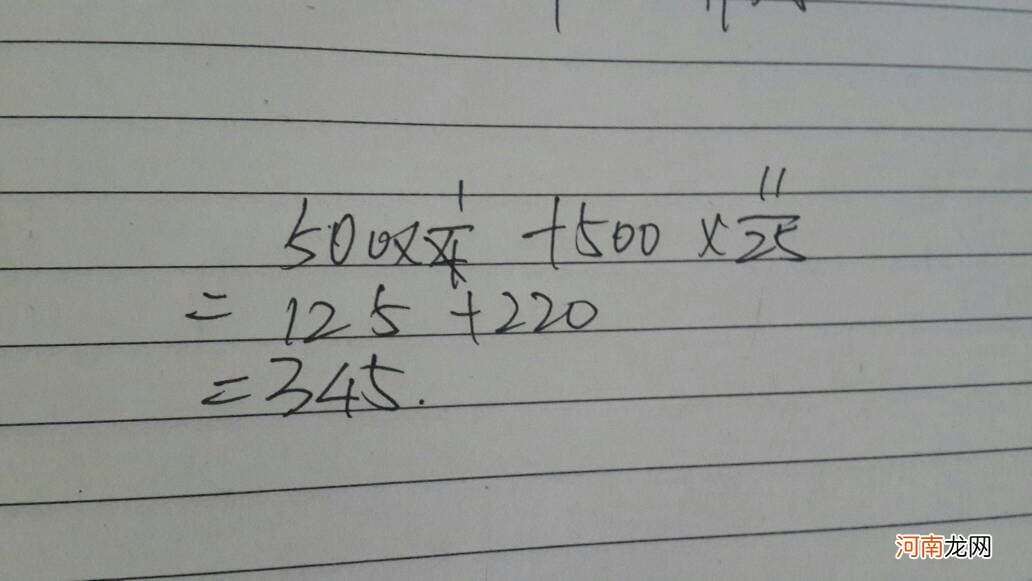 500×1/4 +500×11/25
= 125 +220
=345.
河南龙网